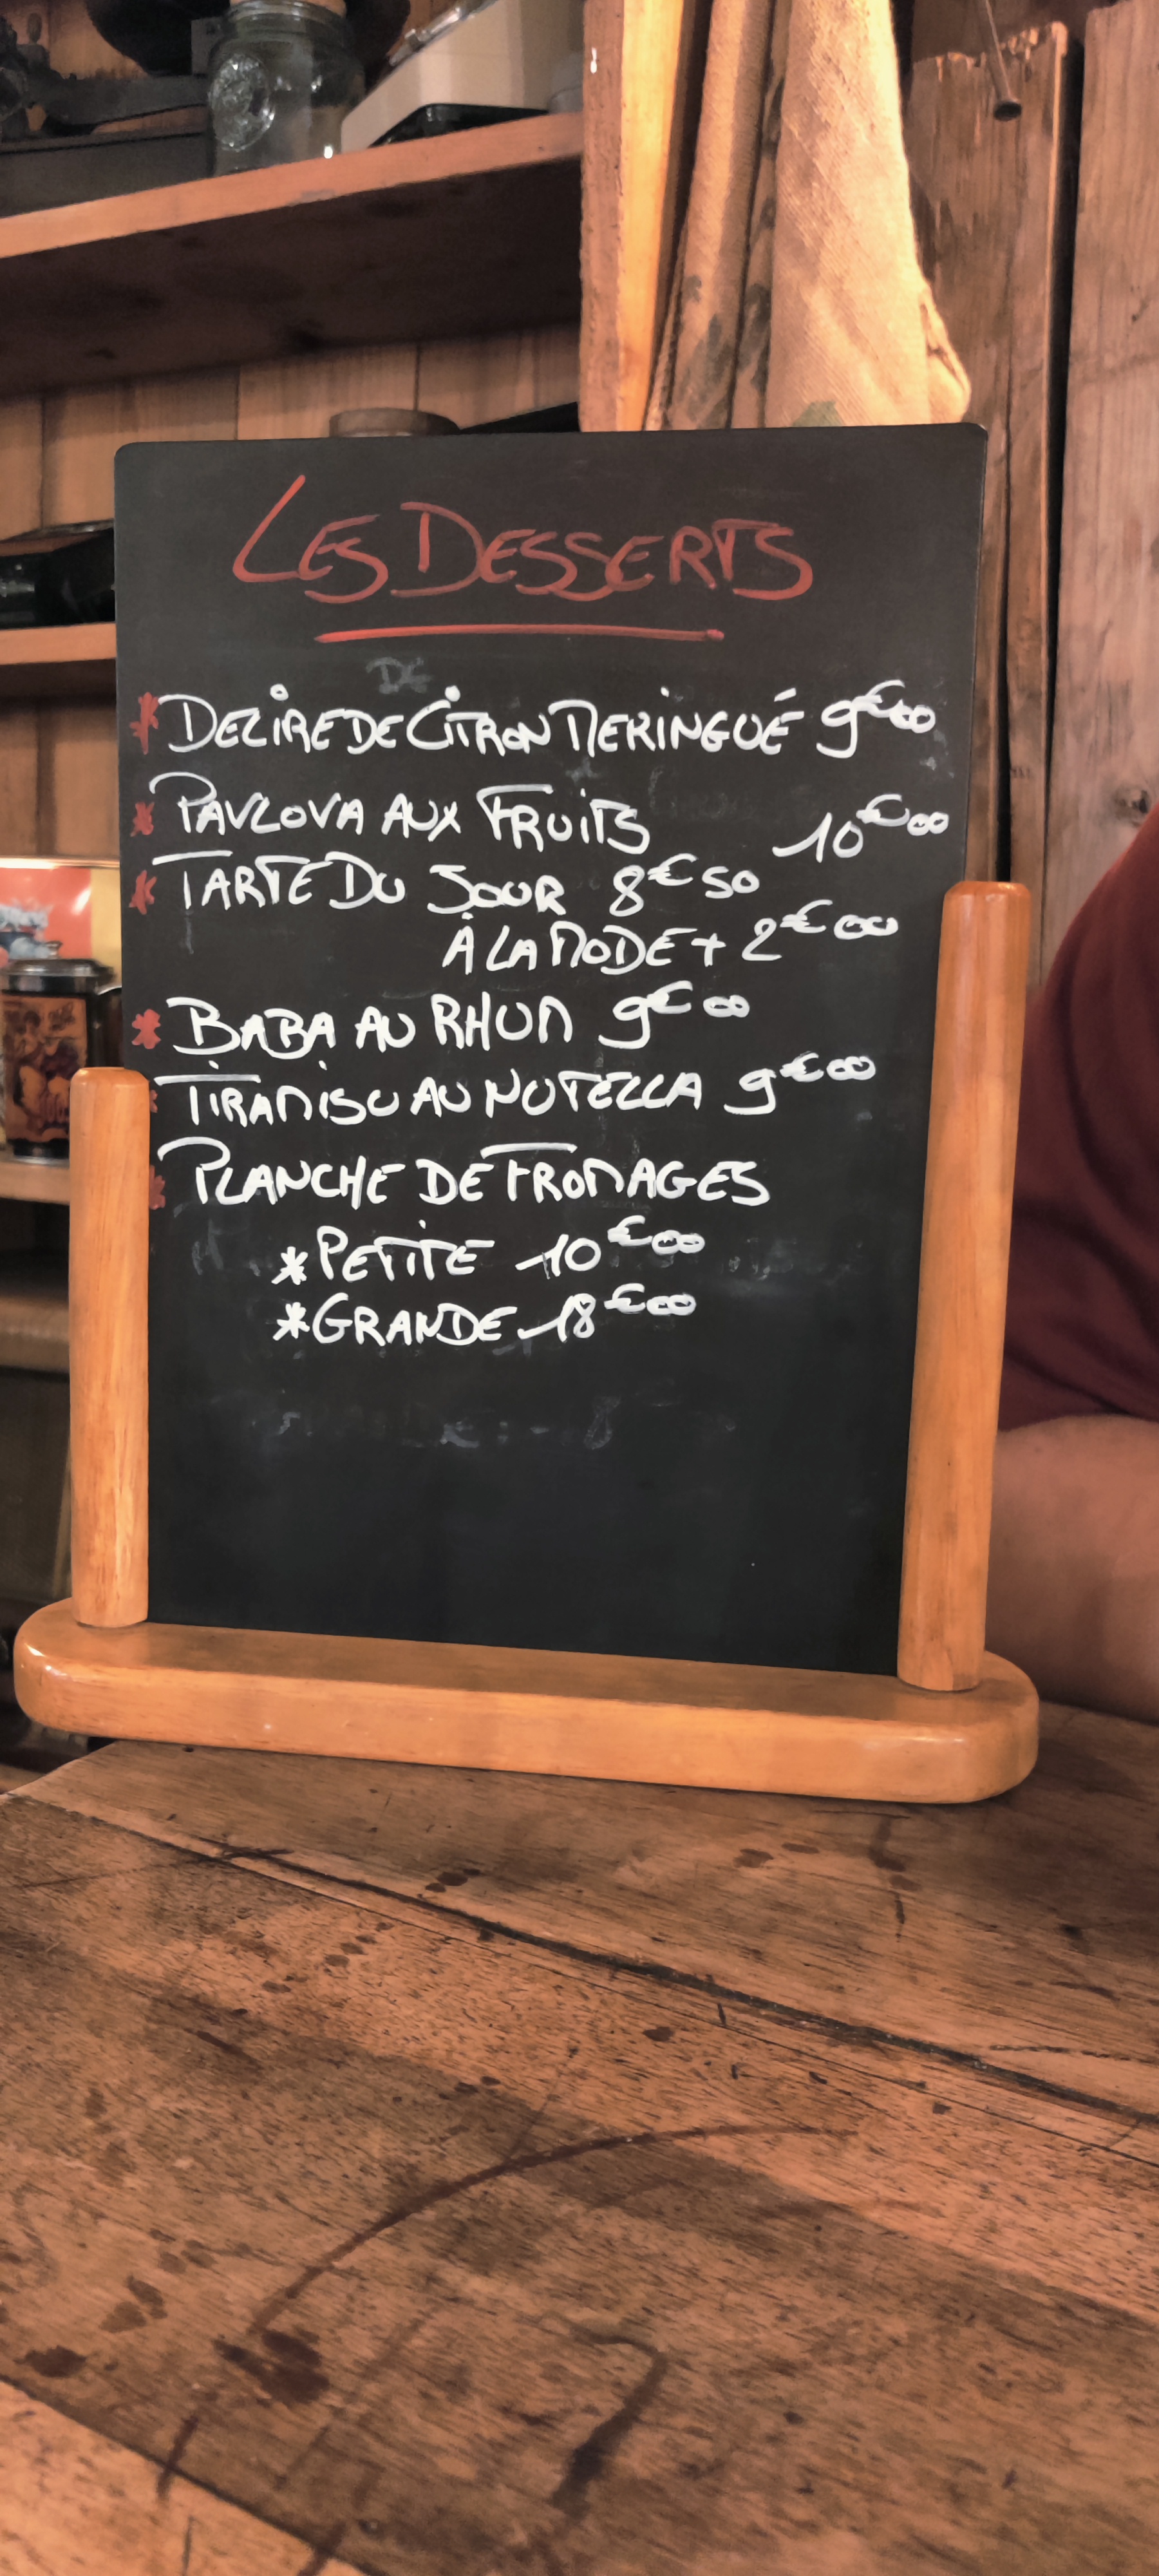 LES DESSERTS
* DELIRE DE CITRON MERINGUÉ 9€00
* PAVLOVA AUX FRUITS 10€00
* TARTE DU JOUR 8€50
À LA MODE + 2€00
* BABA AU RHUM 9€00
* TIRAMISU AU NUTELLA 9€00
* PLANCHE DE FROMAGES
* PETITE 10€00
* GRANDE 18€00